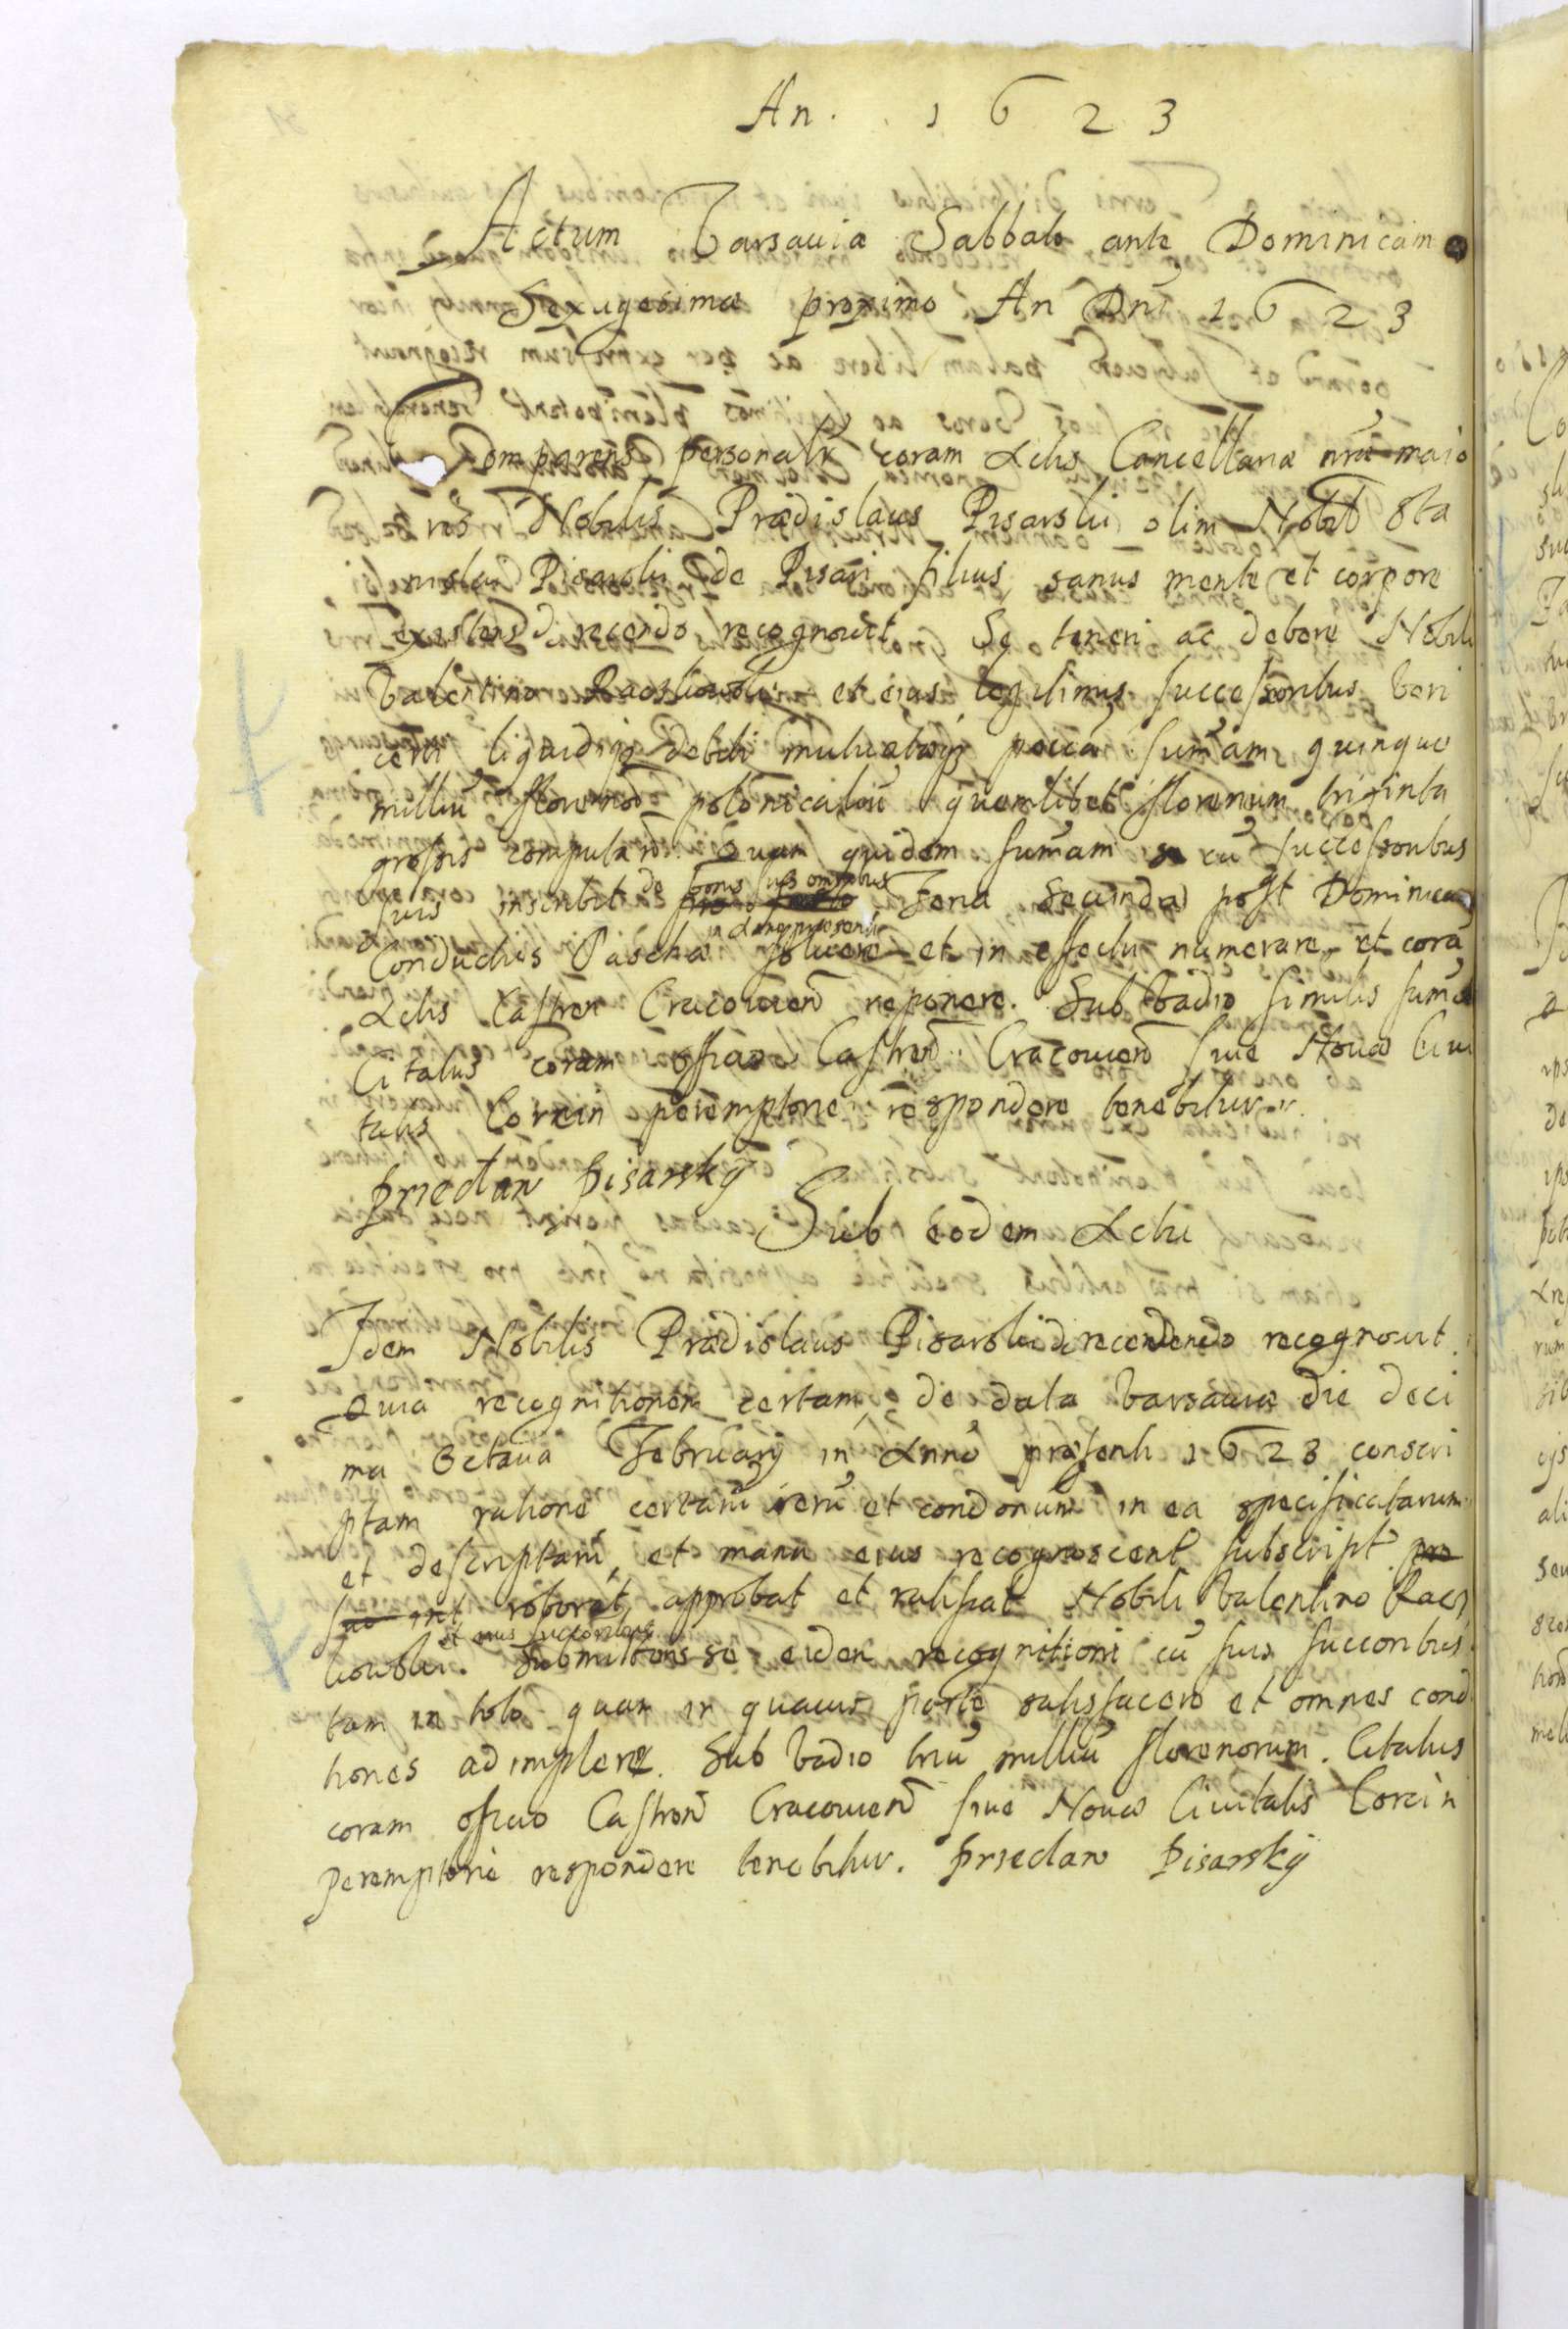 An. 1 6 2 3
Actum Varsauiæ Sabbato ante Dominicam
Sexagesimæ proximo An Dni 1 6 2 3
Comparens personalr coram Actis Cancellariæ nræ maio
ris Nobilis Prædislaus Pisarski olim Nobil Sta
nislai Pisarski de Pisari filius, sanus mente et corpore
existens d recendo recognouit Se teneri ac debere Nobili
Valentino et eius legitimis successoribus veri
certi liquidiq debiti mutuatãq pecuã sumam quinque
milliũ florenoɍ polonicaliũ quemlibet florenum triginta
grossis computañ. Quam quidem sumam se cũ successoribus
suis inscribit de bonis suis omnibus Feria Secunda post Dominicam
Conductus Paschæ in Año præsenti soluere et in effectu numerare et corã
Actis Castreñ Cracouieñ reponere. Sub vadio similis sumæ
Citatus coram officio Castreñ Cracouieñ siue Nouæ Ciui
tatis Corcin peremptorie respondere tenebitur.
Przedław Pisarsky
Sub eodem Actu
Idem Nobilis Prædislaus Pisarski d recendendo recognouit
Quia recognitionem certam, de data Varsauiæ die deci
ma Octaua Februarij in Anno præsenti 1 6 2 3 conscri
ptam ratione certarũ rerũ et condonum in ea specificatarum
et descriptarũ, et manu eius recognoscent subscript pro
roborat, approbat et ratificat Nobili Valentino Racz
kowski et eius succoribus. Submittens se eidem recognitioni cũ suis succoribus
tam in toto quam in quauis parte satisfacere et omnes cond
tiones adimplere. Sub vadio triũ milliũ florenorum. Citatus
coram officio Castreñ Cracouieñ siue Nouæ Ciuitatis Corcin
peremptorie respondere tenebitur. Przedław Pisarsky